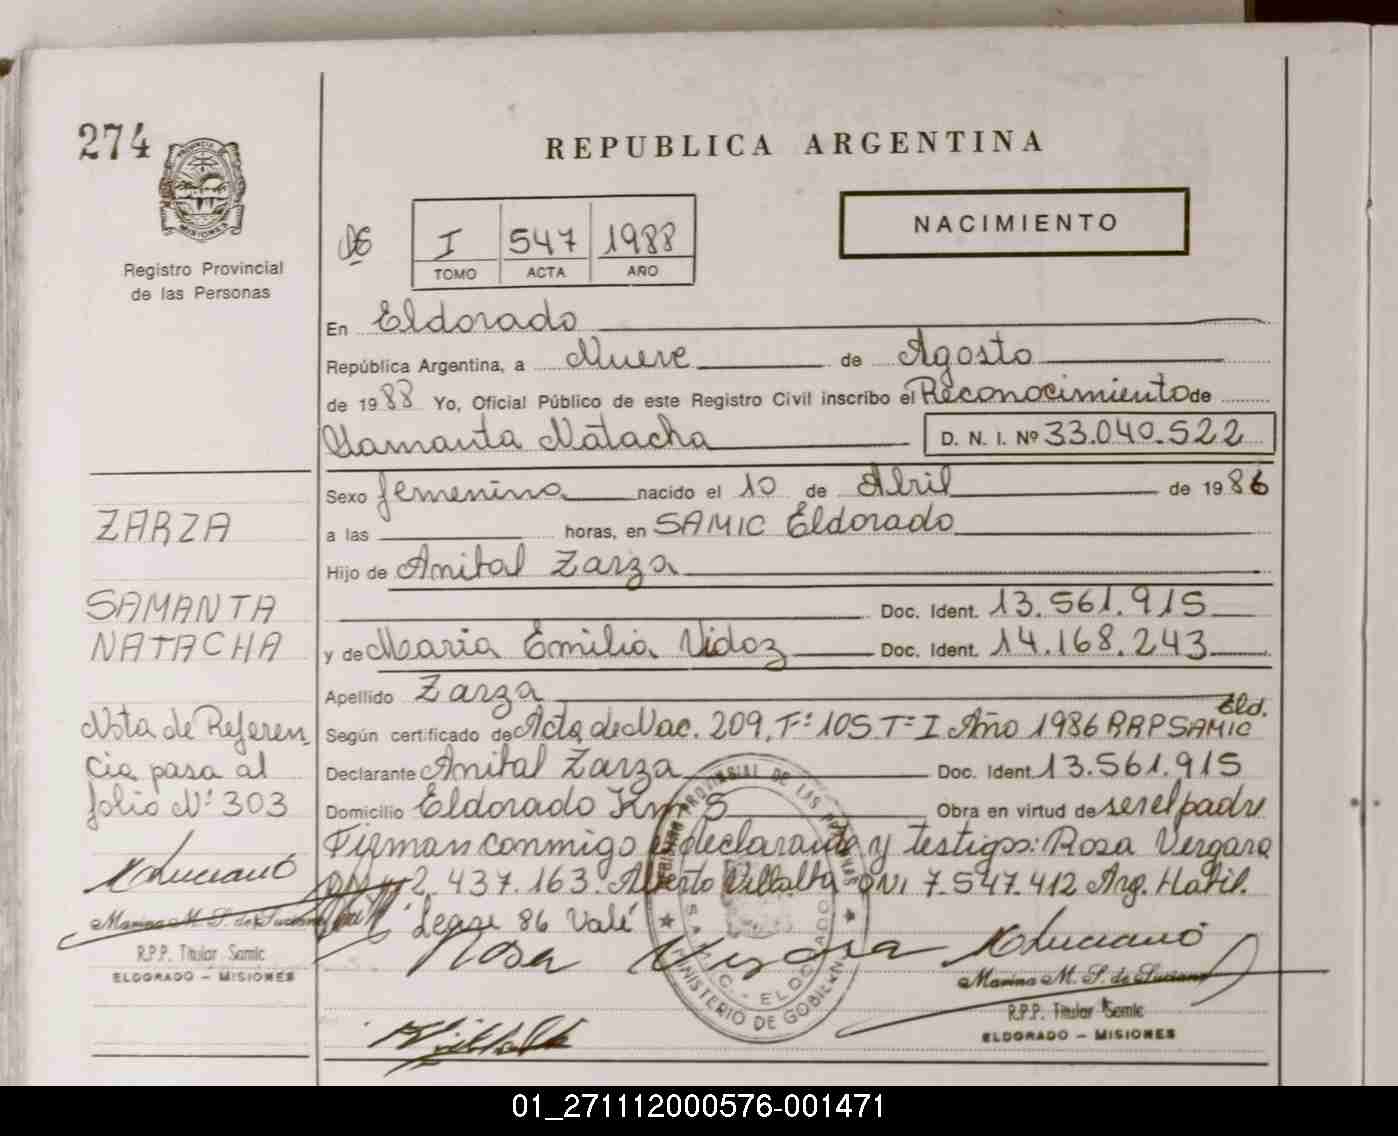 274
REPUBLICA ARGENTINA
PROVINCIA DE MISIONES
Registro Provincial
de las Personas
I 547 1988
TOMO ACTA AÑO
NACIMIENTO
En Eldorado
República Argentina, a Nueve de Agosto
de 1988 Yo, Oficial Público de este Registro Civil inscribo el Reconocimiento de
Samanta Natacha D. N. I. Nº 33.040.522
Sexo femenino nacido el 10 de Abril de 1986
ZARZA
a las horas, en SAMIC Eldorado
Hijo de Anibal Zarza
SAMANTA
Doc. Ident. 13.561.915
NATACHA
y de Maria Emilia Vidoz Doc. Ident. 14.168.243
Apellido Zarza
Nota de Referen
cia pasa al
folio Nº 303
Según certificado de Acta de Nac. 209, Fº 105 Tº I Año 1986 RRP SAMIC Eld.
Declarante Anibal Zarza Doc. Ident. 13.561.915
Domicilio Eldorado Km 5 Obra en virtud de ser el padre
Firman conmigo declarante y testigos: Rosa Vergara
2.437.163. Alberto Villalba DNI 7.547.412 Arg. Habil.
Lease 86 Vale
Rosa Vergara
MLuciano
Marina M. S. de Luciano
R.P.P. Titular Samic
ELDORADO – MISIONES
MLuciano
Marina M. S. de Luciano
R.P.P. Titular Samic
ELDORADO – MISIONES
REGISTRO PROVINCIAL DE LAS PERSONAS
S.A.M.I.C. - ELDORADO
MINISTERIO DE GOBIERNO
01_271112000576-001471